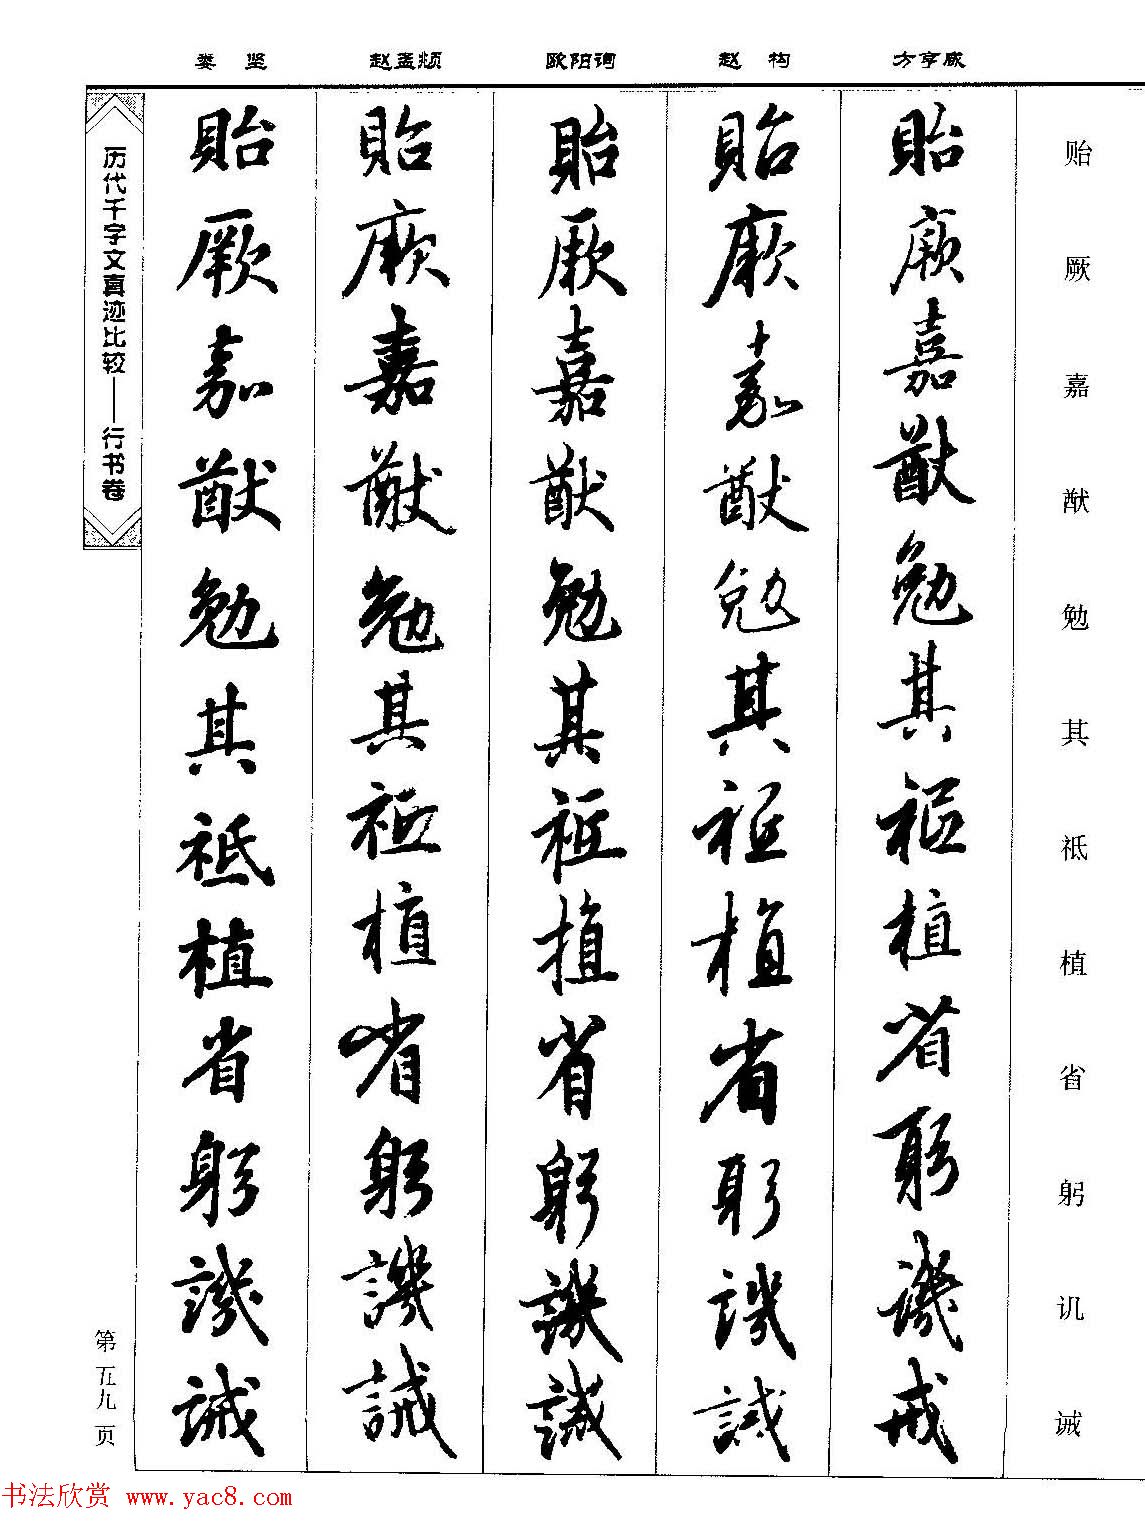 娄 坚 赵孟頫 欧阳询 赵 构 方亨咸
贻厥嘉猷勉其祗植省躬讥诫
貽厥嘉猷勉其祗植省躬譏戒
貽厥嘉猷勉其祗植省躬譏誡
貽厥嘉猷勉其祗植省躬譏誡
貽厥嘉猷勉其祗植省躬譏誡
貽厥嘉猷勉其祗植省躬譏誡
历代千字文真迹比较——行书卷
第五九页
书法欣赏 www.yac8.com